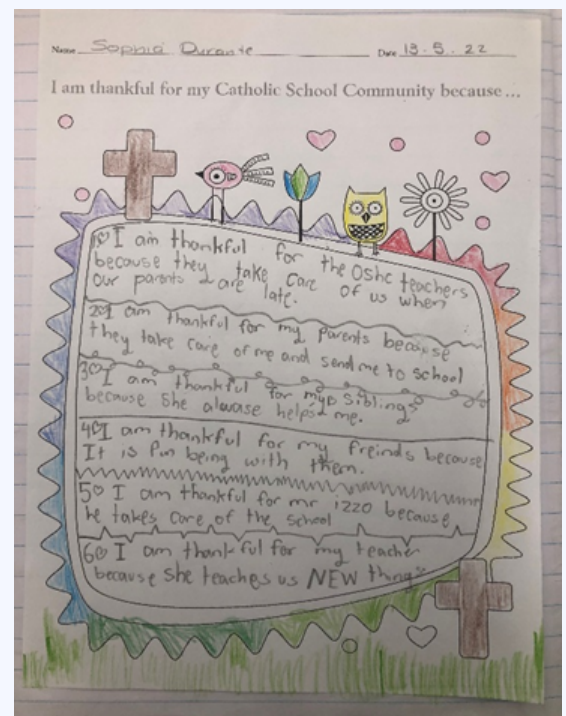 Name Sophia Durante Date 13.5.22
I am thankful for my Catholic School Community because...
1 I am thankful for the OSHC teachers
because they take care of us when
our parents are late.
2 I am thankful for my parents because
they take care of me and send me to school
3 I am thankful for my siblings
because she alwase helps me.
4 I am thankful for my freinds because
It is fun being with them.
5 I am thankful for mr izzo because
he takes care of the school
6 I am thankful for my teacher
because she teaches us NEW things